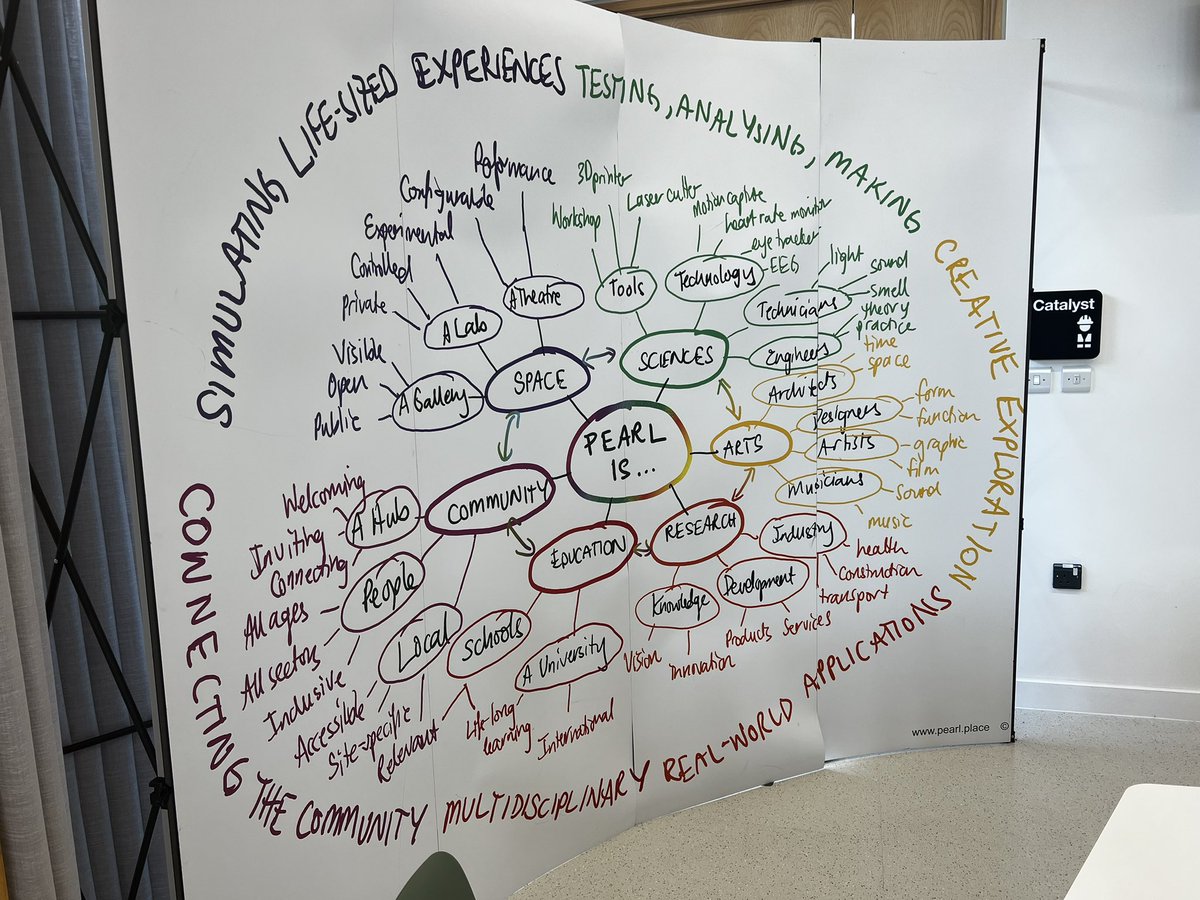 SIMULATING LIFE-SIZED EXPERIENCES
TESTING, ANALYSING, MAKING
CREATIVE EXPLORATION
MULTIDISCIPLINARY REAL-WORLD APPLICATIONS
CONNECTING THE COMMUNITY
PEARL
IS...
SPACE
A Theatre
Performance
Configurable
A Lab
Experimental
Controlled
Private
A Gallery
Visible
Open
Public
SCIENCES
Tools
Workshop
3D printer
Laser cutter
Technology
Motion capture
heart rate monitor
eye tracker
EEG
Technicians
light
sound
smell
Engineers
theory
practice
ARTS
Architects
time
space
Designers
form
function
Artists
graphic
film
Musicians
sound
music
RESEARCH
Industry
health
construction
transport
Development
Products
Services
Knowledge
Vision
Innovation
EDUCATION
Schools
A University
Life-long
learning
International
COMMUNITY
A Hub
Welcoming
Inviting
Connecting
People
All ages
All sectors
Inclusive
Local
Accessible
Site-specific
Relevant
Catalyst
www.pearl.place ©